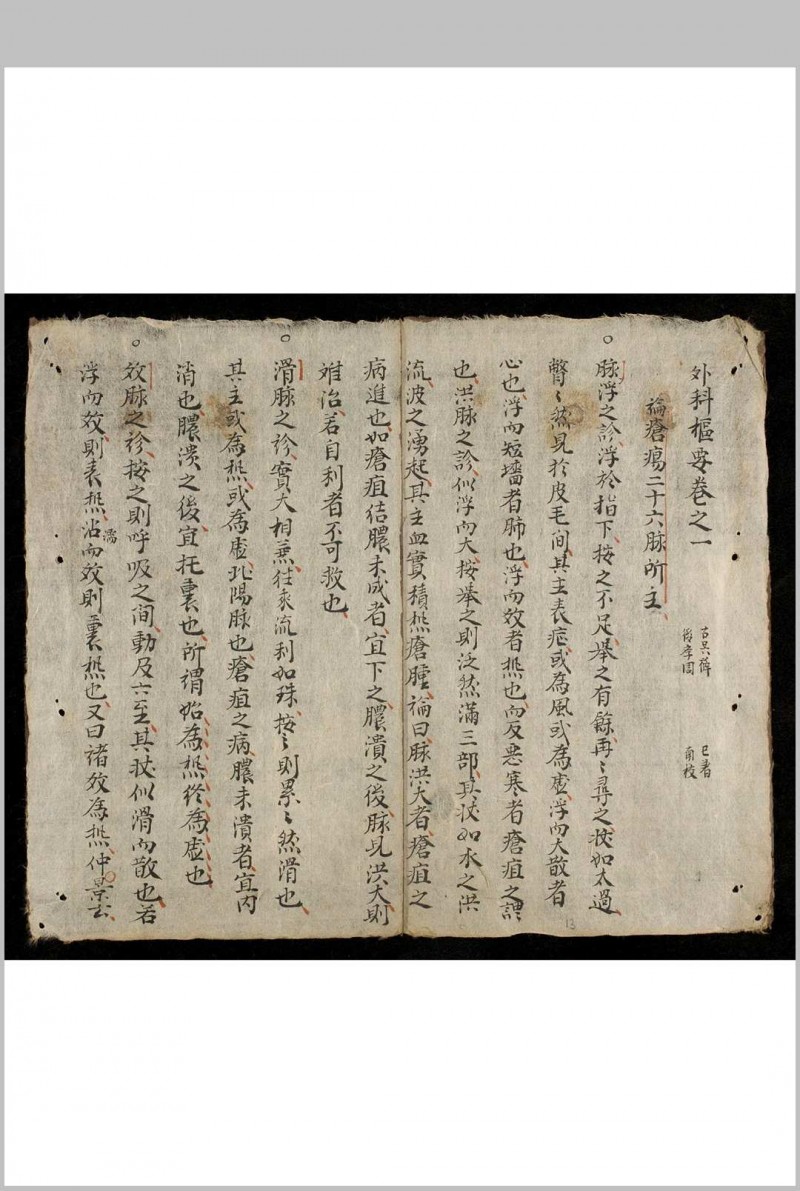 外科樞要卷之一
論瘡瘍二十六脉所主
古吳薛 己著
後學周 甪校
脉浮之診浮於指下按之不足舉之有餘再〻尋之狀如太過
瞥〻然見於皮毛間其主表症或為風或為虛浮而大散者
心也浮而短墻者肺也浮而效者熱也而反惡寒者瘡疽之謂
也洪脉之診似浮而大按舉之則泛然滿三部其狀如水之洪
流波之湧起其主血實積熱瘡腫論曰脉洪大者瘡疽之
病進也如瘡疽结膿未成者宜下之膿潰之後脉見洪大則
难治若自利者不可救也
滑脉之診實大相蒹往来流利如珠按〻則累〻然滑也
其主或為熱或為虛此陽脉也瘡疽之病膿未潰者宜内
消也膿潰之後宜托裏也所謂始為熱终為虛也
效脉之診按之則呼吸之間動及六至其狀似滑而散也若
浮而效則表熱沾而效則裏熱也又曰諸效為熱仲景云
濡
13